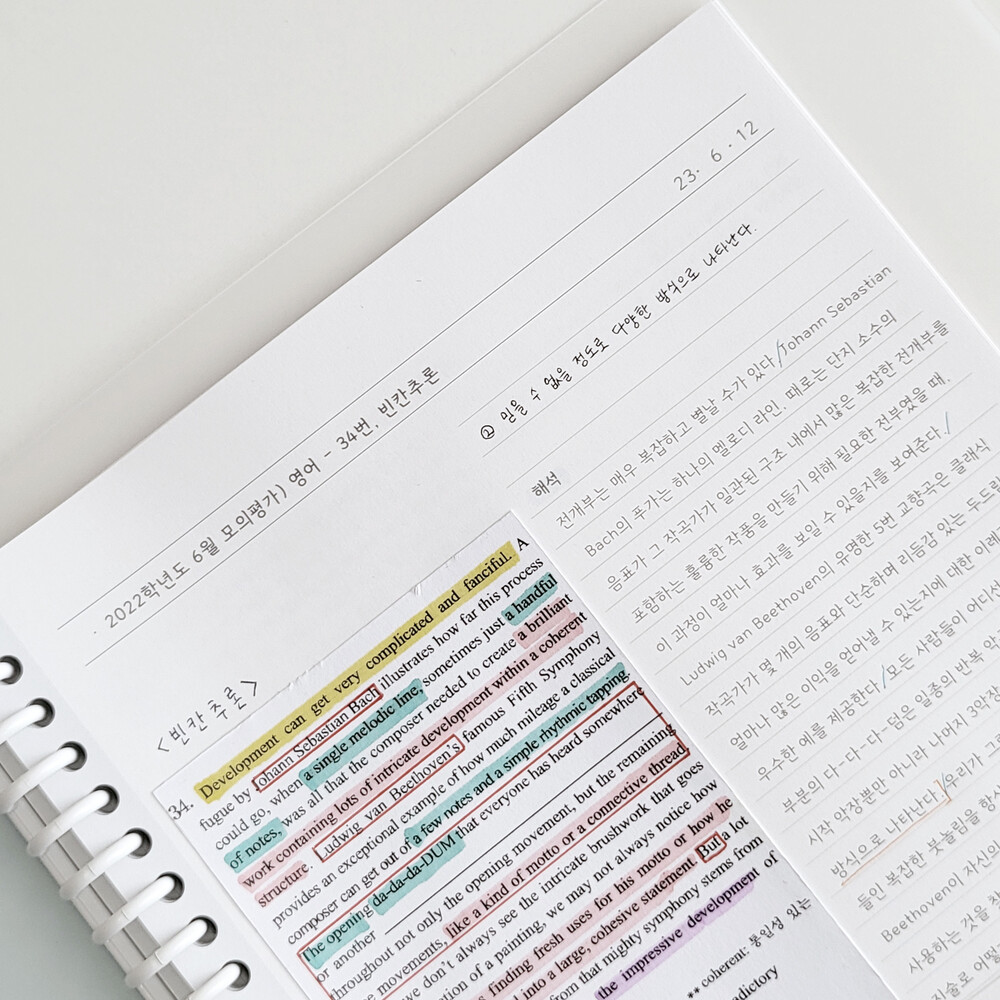 23. 6. 12
· 2022학년도 6월 모의평가) 영어 - 34번. 빈칸추론
② 믿을 수 없을 정도로 다양한 방식으로 나타난다.
<빈칸추론>
34. Development can get very complicated and fanciful. A
fugue by Johann Sebastian Bach illustrates how far this process
could go, when a single melodic line, sometimes just a handful
of notes, was all that the composer needed to create a brilliant
work containing lots of intricate development within a coherent
structure. Ludwig van Beethoven's famous Fifth Symphony
provides an exceptional example of how much mileage a classical
composer can get out of a few notes and a simple rhythmic tapping.
The opening da-da-da-DUM that everyone has heard somewhere
or another
throughout not only the opening movement, but the remaining
movements, like a kind of motto or a connective thread.
we don't always see the intricate brushwork that goes
of a painting, we may not always notice how
finding fresh uses for his motto or how he
into a large, cohesive statement. But a lot
from that mighty symphony stems from
the impressive development of
** coherent: 통일성 있는
해석
전개부는 매우 복잡하고 별날 수가 있다/Johann Sebastian
Bach의 푸가는 하나의 멜로디 라인. 때로는 단지 소수의
음표가 그 작곡가가 일관된 구조 내에서 많은 복잡한 전개부를
포함하는 훌륭한 작품을 만들기 위해 필요한 전부였을 때.
이 과정이 얼마나 효과를 보일 수 있을지를 보여준다/
Ludwig van Beethoven의 유명한 5번 교향곡은 클래식
작곡가가 몇 개의 음표와 단순하며 리듬감 있는
얼마나 많은 이익을 얻어낼 수 있는지에 대한
우수한 예를 제공한다/모든 사람들이
부분의 다-다-다-덤은 일종의 반복
시작 악장뿐만 아니라 나머지 3악장
방식으로 나타난다/우리가
들인 복잡한 붓놀림을 항상
Beethoven이 자신의
사용하는 것을